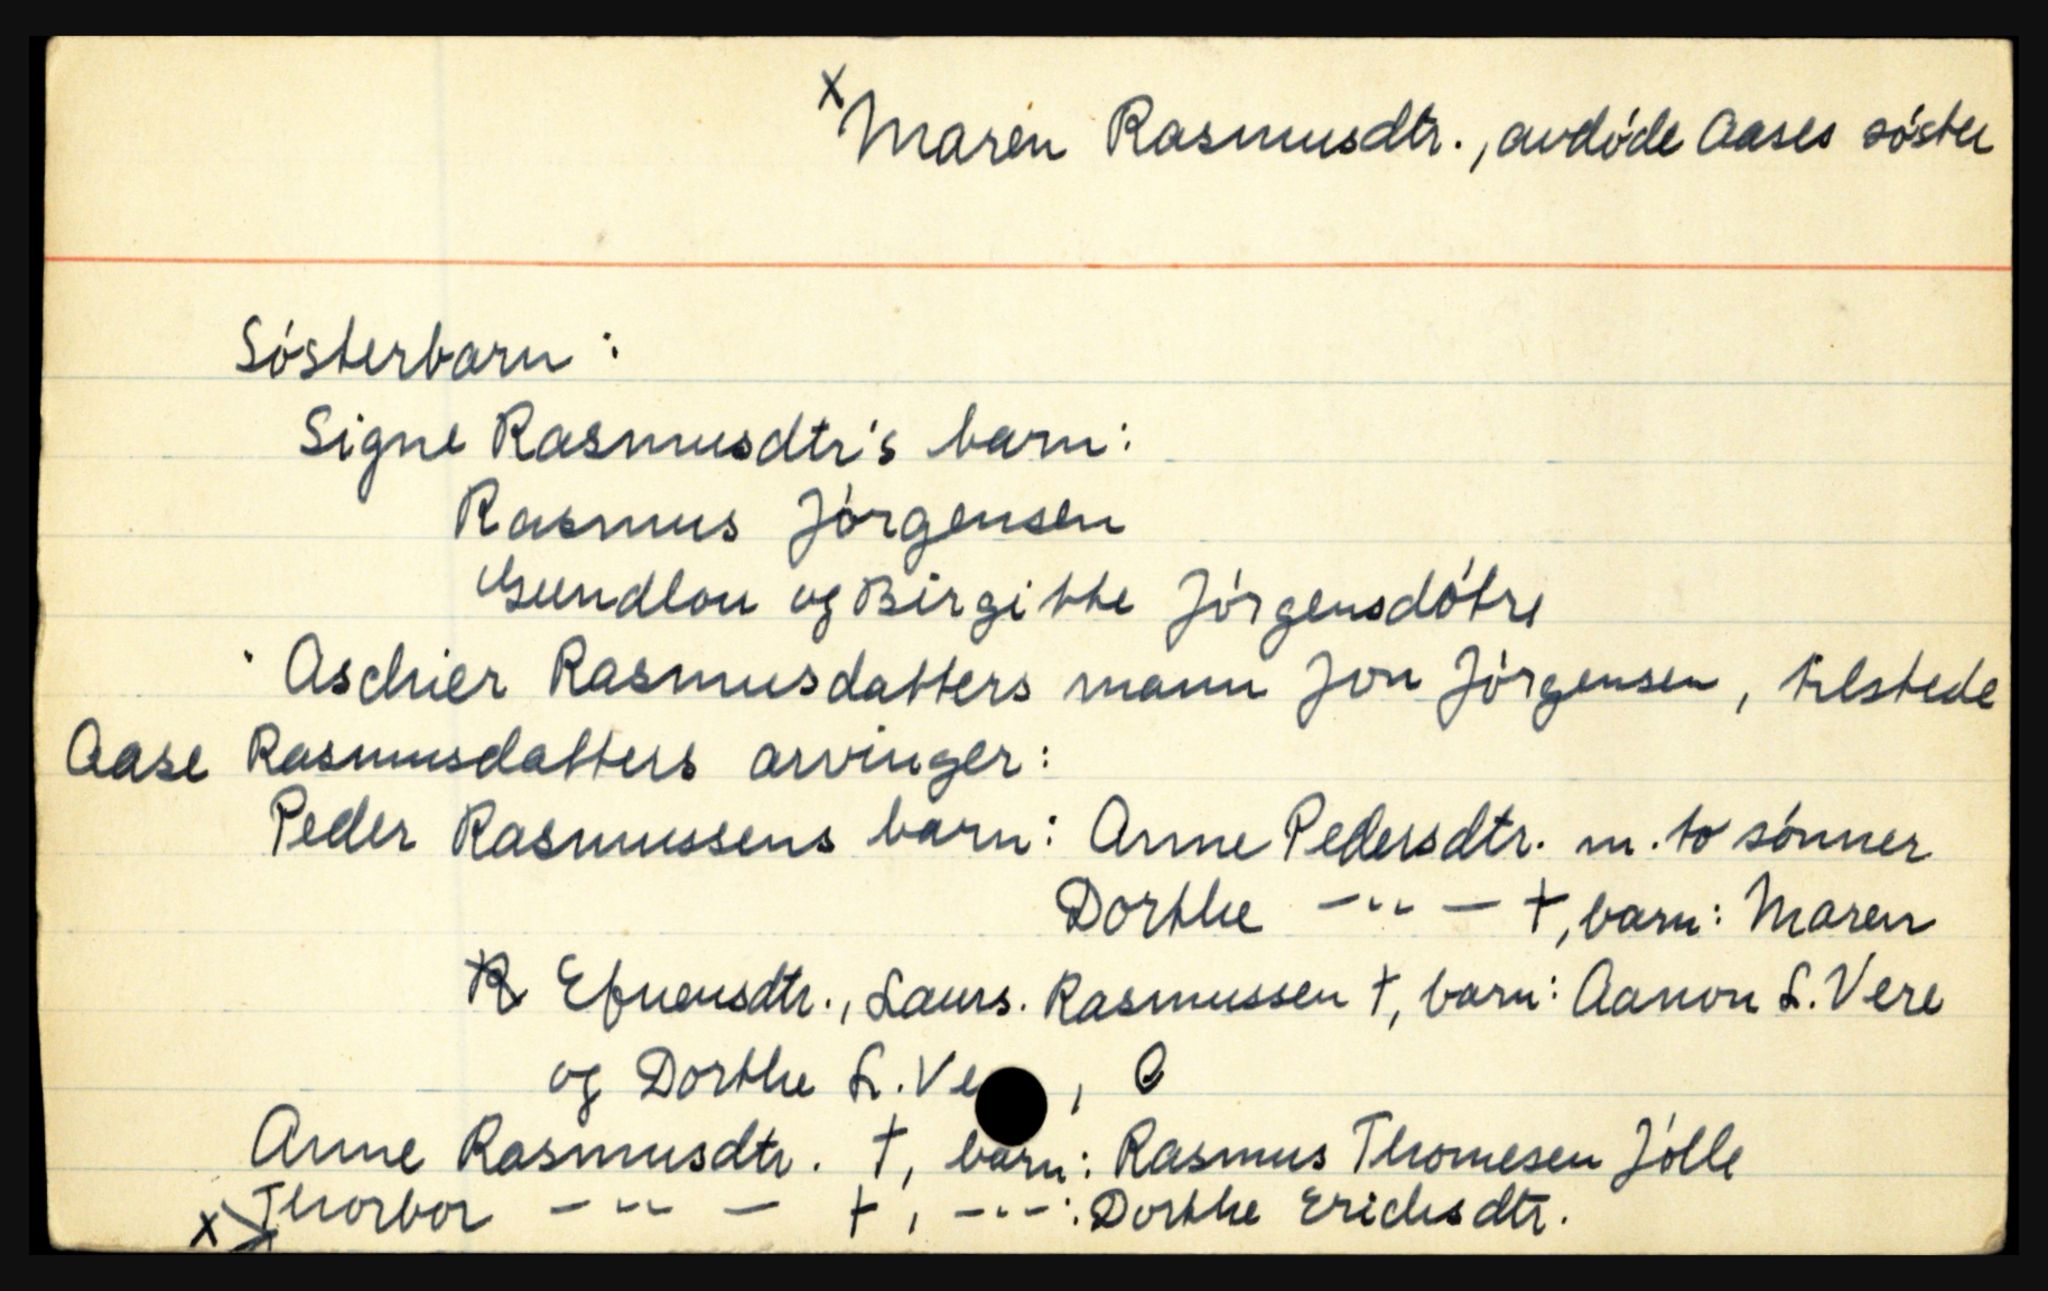 x Maren Rasmusdtr., avdøde Aases søster
Søsterbarn:
Signe Rasmusdtr's barn:
Rasmus Jørgensen
Gundlou og Birgitte Jørgensdøtre
Aschier Rasmusdatters mann Jon Jørgensen, tilstede
Aase Rasmusdatters arvinger:
Peder Rasmussens barn: Anne Pedersdtr. m. to sønner
Dorthe —"— †, barn: Maren
Efuensdtr., Laurs. Rasmussen †, barn: Aanon L. Vere
og Dorthe L. Ve , 
Anne Rasmusdtr. †, barn: Rasmus Thomesen Jølle
x Thorbor —"— †, —"—: Dorthe Erichsdtr.